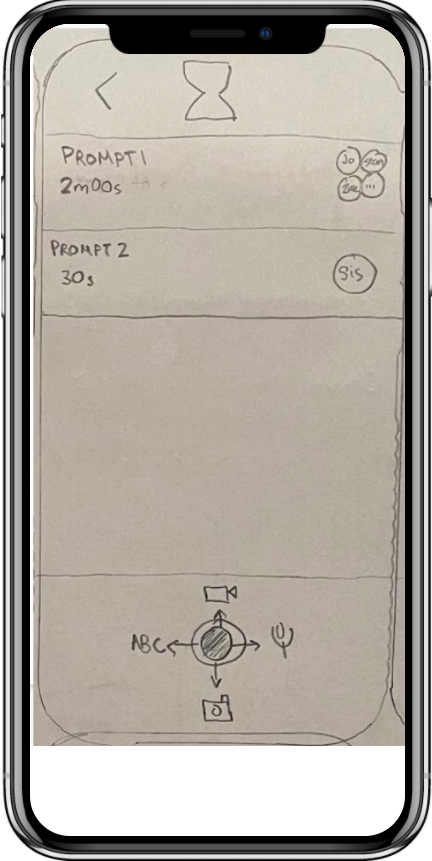 PROMPT 1
2m00s
Jo
Stan
...
PROMPT 2
30s
Sis
ABC